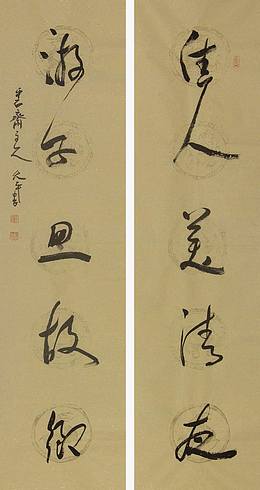 佳人美清夜
游子思故乡